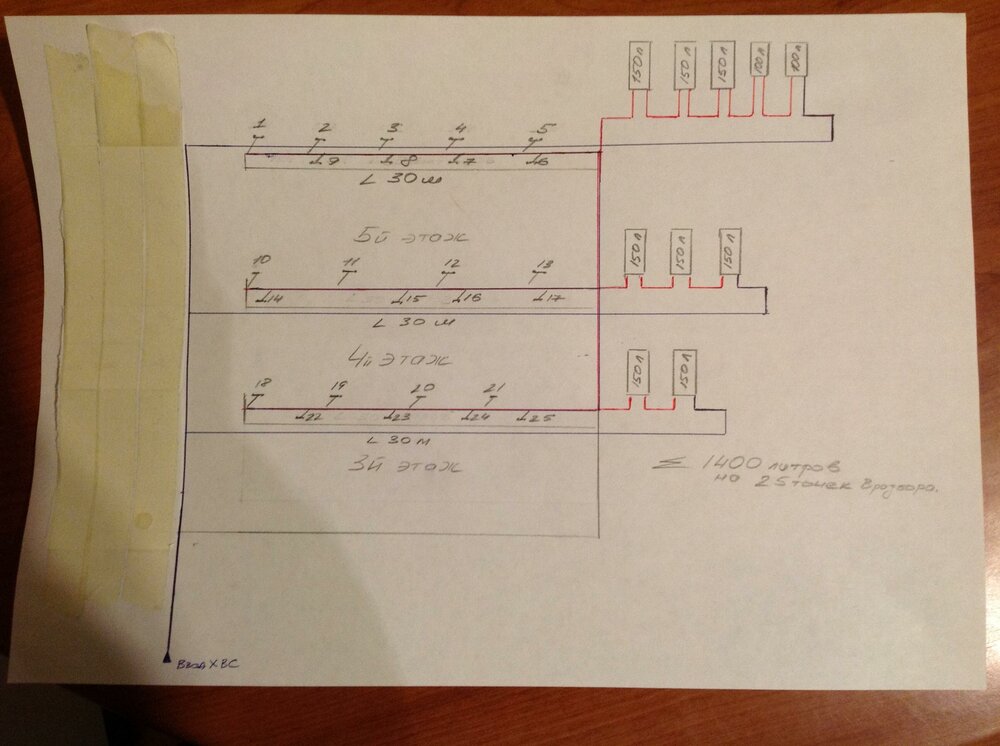 150л 150л 150л 100л 100л
1 2 3 4 5
9 8 7 6
L 30 м
5й этаж
150л 150л 150л
10 11 12 13
14 15 16 17
L 30 м
4й этаж
150л 150л
18 19 20 21
22 23 24 25
L 30 м
3й этаж
Σ 1400 литров
на 25 точек
Ввод ХВС